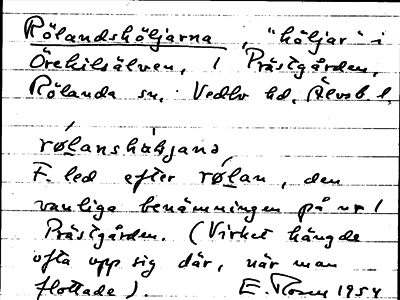 Rölandshöljarna, "höljar" i
Örekilsälven, 1 Prästgården,
Rölanda sn. Vedbo hd. Älvsb. l.
rølanshøljana
F. led efter rølan, den
vanliga benämningen på nr 1
Prästgården. (Virket hängde
ofta upp sig där, när man
flottade). E. Rosén 1954